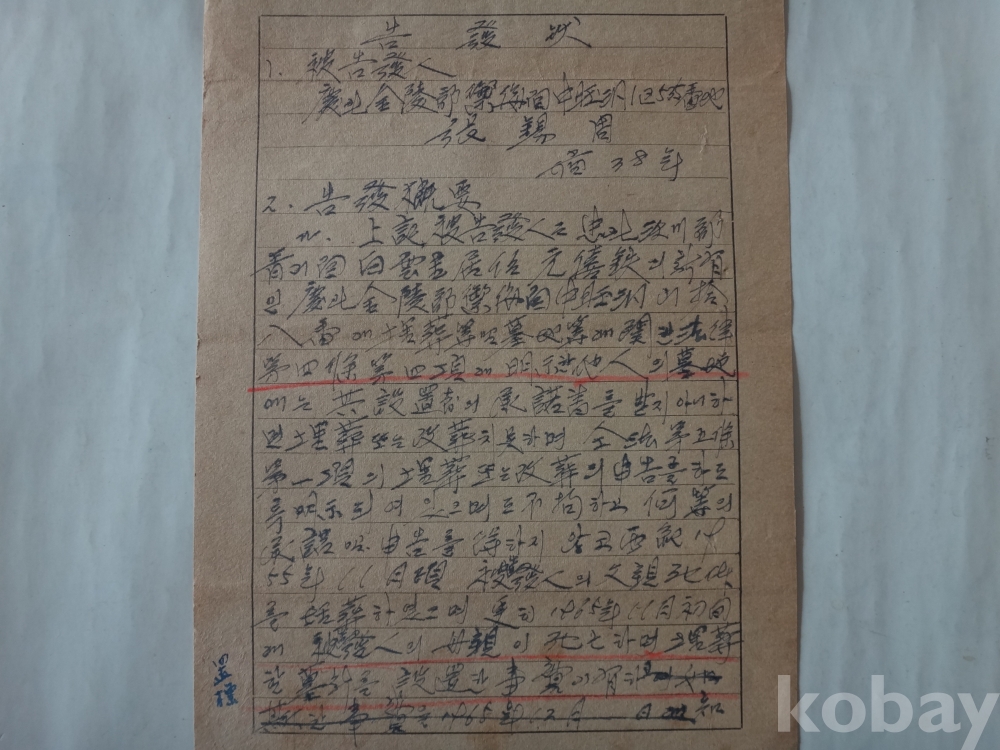 告發狀
1. 被告發人
慶北金陵郡禦侮面中旺洞
張錫周
當 38年
2. 告發槪要
가. 上記 被告發人은 忠北沃川郡
靑山面 白雲里居住 元僖鉄의 所有
인 慶北金陵郡禦侮面中旺洞 山 拾
八番에 埋葬等 및 墓地等에 關한 法律
第四條第四項에 明示한 他人의 墓地
에는 共 設置者의 承諾書를 받지 아니하
면 埋葬 또는 改葬치 못하며 仝法 第五條
第一項의 埋葬 또는 改葬의 申告를 하도
록 明示되여 있으며도 不拘하고 何等의
承諾 및 申告를 得하지 않고 西紀 19
55年 11月頃 被發人의 父親 死体
를 埋葬하였으며 更히 1965年 11月初旬
에 被發人의 母親이 死亡하며 埋葬
한 墓地를 設置한 事實이 有하
事 1965年 12月 日 知
kobay